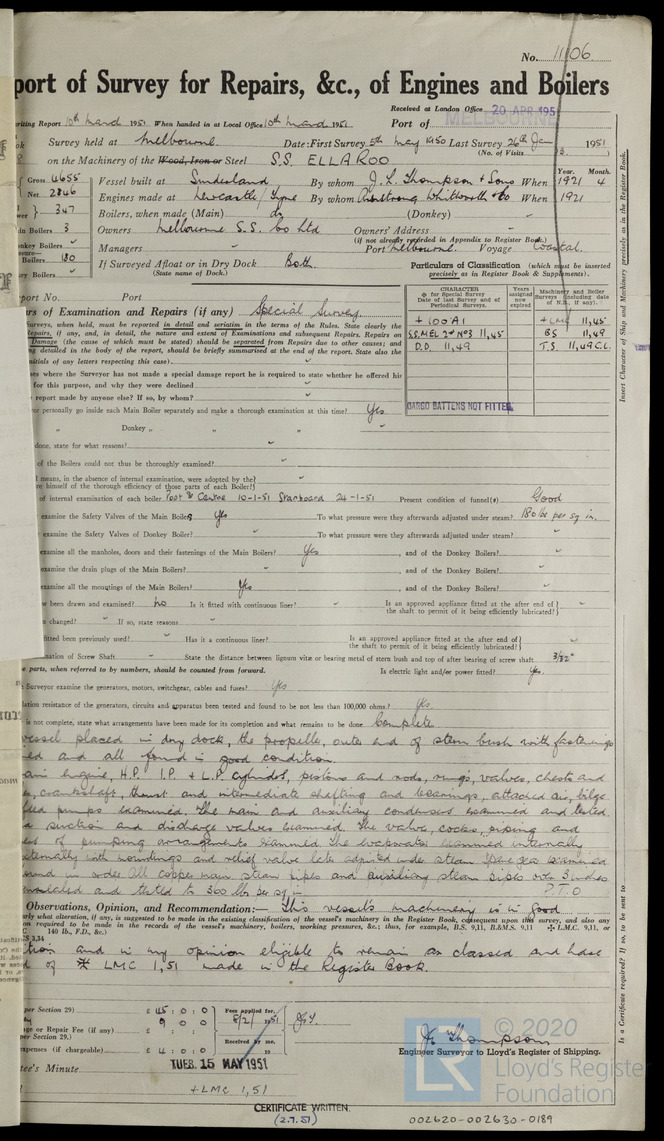 No. 11106
port of Survey for Repairs, &c., of Engines and Boilers
Received at London Office 20 APR 1951
writing Report 10th March 1951 When handed in at Local Office 10th March 1951 Port of MELBOURNE
Survey held at Melbourne. Date: First Survey 5th May 1950 Last Survey 26th Jan 1951
(No. of Visits
on the Machinery of the Wood, Iron or Steel S.S. ELLAROO
Gross 4655
Net 2846
347
Boilers 3
Boilers 180
Year. Month.
Vessel built at Sunderland By whom J. L. Thompson & Sons When 1921 4
Engines made at Newcastle/Tyne By whom Armstrong Whitworth & Co When 1921
Boilers, when made (Main) do (Donkey)
Owners Melbourne S.S. Co Ltd Owners' Address
(if not already recorded in Appendix to Register Book.)
Managers Port Melbourne. Voyage Coastal.
If Surveyed Afloat or in Dry Dock Both.
(State name of Dock.)
Particulars of Classification (which must be inserted
precisely as in Register Book & Supplements).
port No. Port
CHARACTER
for Special Survey
Date of last Survey and of
Periodical Surveys.
Years
assigned
now
expired
Machinery and Boiler
Surveys (including date
of N.B., if any).
+ 100A1 + LMC 11,45
S.S. MEL 2nd No3 11,45 BS 11,49
D.D. 11,49 T.S. 11,49 C.L.
CARGO BATTENS NOT FITTED.
Insert Character of Ship and Machinery precisely as in the Register Book.
rs of Examination and Repairs (if any) Special Survey.
urveys, when held, must be reported in detail and seriatim in the terms of the Rules. State clearly the
Repairs, if any, and, in detail, the nature and extent of Examinations and subsequent Repairs. Repairs on
Damage (the cause of which must be stated) should be separated from Repairs due to other causes; and
ng detailed in the body of the report, should be briefly summarised at the end of the report. State also the
nitials of any letters respecting this case
ses where the Surveyor has not made a special damage report he is required to state whether he offered his
for this purpose, and why they were declined
report made by anyone else? If so, by whom?
or personally go inside each Main Boiler separately and make a thorough examination at this time? Yes
" Donkey " "
done, state for what reasons?
of the Boilers could not thus be thoroughly examined?
means, in the absence of internal examination, were adopted by the
re himself of the thorough efficiency of those parts of each Boiler?
of internal examination of each boiler Port & Centre 10-1-51 Starboard 24-1-51 Present condition of funnel(s) Good
examine the Safety Valves of the Main Boilers Yes To what pressure were they afterwards adjusted under steam? 180 lbs per sq in.
examine the Safety Valves of Donkey Boiler? To what pressure were they afterwards adjusted under steam?
examine all the manholes, doors and their fastenings of the Main Boilers? Yes, and of the Donkey Boilers?
examine the drain plugs of the Main Boilers?, and of the Donkey Boilers?
examine all the mountings of the Main Boilers? Yes, and of the Donkey Boilers?
w been drawn and examined? no Is it fitted with continuous liner? Is an approved appliance fitted at the after end of
the shaft to permit of it being efficiently lubricated?
changed? If so, state reasons
fitted been previously used? Has it a continuous liner? Is an approved appliance fitted at the after end of
the shaft to permit of it being efficiently lubricated?
nation of Screw Shaft State the distance between lignum vitæ or bearing metal of stern bush and top of after bearing of screw shaft 3/32"
e parts, when referred to by numbers, should be counted from forward. Is electric light and/or power fitted? Yes.
Surveyor examine the generators, motors, switchgear, cables and fuses? Yes
lation resistance of the generators, circuits and apparatus been tested and found to be not less than 100,000 ohms? Yes.
is not complete, state what arrangements have been made for its completion and what remains to be done Complete
vessel placed in dry dock, the propeller, outer end of stern bush with fastenings
ned and all found in good condition.
ain engine, H.P. I.P. & L.P. cylinders, pistons and rods, rings, valves, chests and
s, crankshaft, thrust and intermediate shafting and bearings, attached air, bilge
feed pumps examined. The main and auxiliary condensers examined and tested.
a suction and discharge valves examined. The valves, cocks, piping and
of pumping arrangements examined. The evaporator examined internally
xternally with mountings and relief valve later adjusted under steam. Spare gear examined
ound in order. All copper main steam pipes and auxiliary steam pipes over 3 inches
annealed and tested to 360 lbs per sq in P.T.O
Observations, Opinion, and Recommendation:— This vessel's machinery is in good
arly what alteration, if any, is suggested to be made in the existing classification of the vessel's machinery in the Register Book, consequent upon this survey, and also any
on required to be made in the records of the vessel's machinery, boilers, working pressures, &c.; thus, for example, B.S. 9,11, B.&M.S. 9,11 L.M.C. 9,11, or
140 lb., F.D., &c.)
S 3,34
tion and in my opinion eligible to remain as classed and have
d of LMC 1,51 made in the Register Book.
Is a Certificate required? If so, to be sent to
per Section 29) £ 45 : 0 : 0 Fees applied for,
9 : 0 : 0 8/2/1951
ge or Repair Fee (if any) £ : :
per Section 29.)
Received by me,
xpenses (if chargeable) £ 4 : 0 : 0 19
J. Thompson
Engineer Surveyor to Lloyd's Register of Shipping.
tee's Minute TUES. 15 MAY 1951
+LMC 1,51
CERTIFICATE WRITTEN.
(2.7.51)
002620-002630-0189
LR
© 2020
Lloyd's Register
Foundation